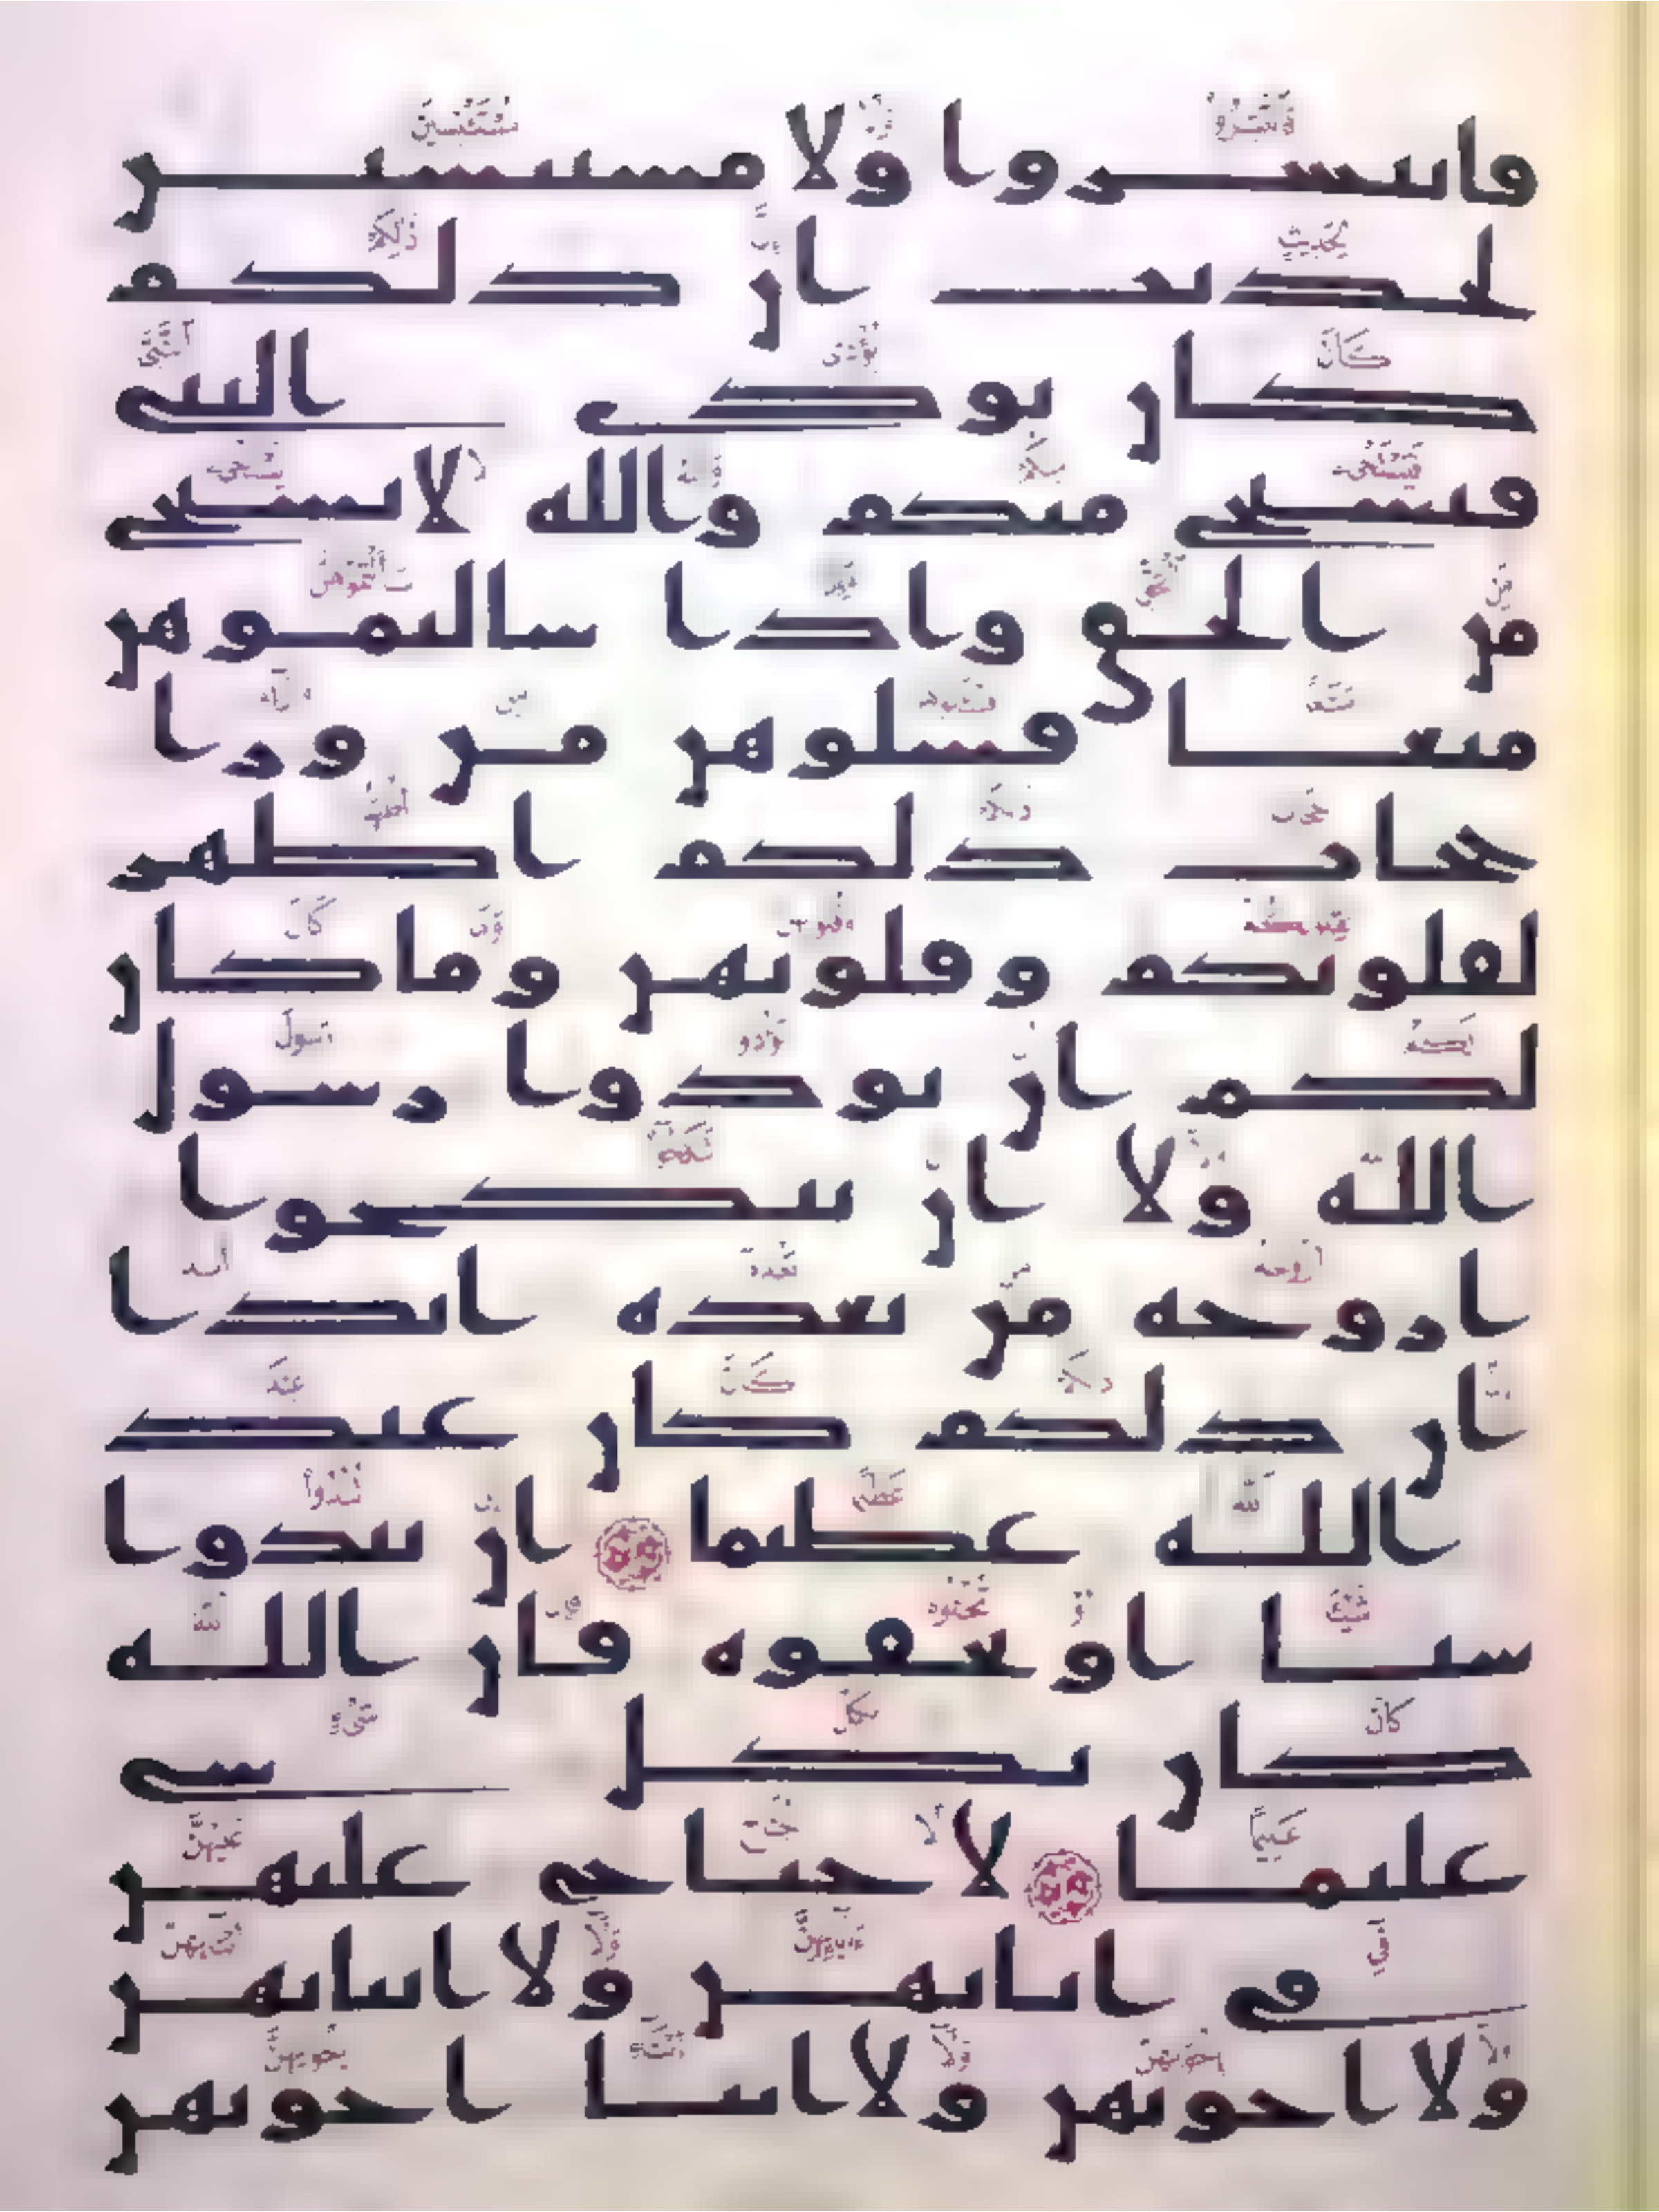 فانتشروا ولا مستنسين
لحديث ان ذلكم
كان يوذي النبي
فيستحي منكم والله لا يستحي
من الحق واذا سالتموهن
متعا فسلوهن من ورا
حجاب ذلكم اطهر
لقلوبكم وقلوبهن وما كان
لكم ان توذوا رسول
الله ولا ان تنكحوا
ازوجه من بعده ابدا
ان ذلكم كان عند
الله عظيما ان تبدوا
شيا او تخفوه فان الله
كان بكل شي
عليما لا جناح عليهن
في ابايهن ولا ابنايهن
ولا اخونهن ولا ابنا اخونهن